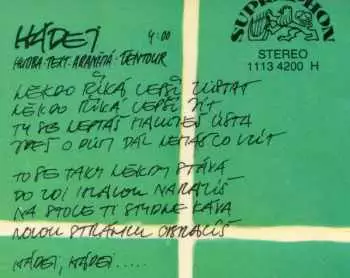 HÁDEJ 4:00
HUDBA·TEXT·ARANŽMÁ·TENTOUR
SUPRAPHON
STEREO
1113 4200 H
NĚKDO ŘÍKÁ LEPŠÍ ZŮSTAT
NĚKDO ŘÍKÁ LEPŠÍ JÍT
TY SE NEPTÁŠ ÚSTA
O DŮM DÁL NEMÁŠ CO
TO SE TAKY NĚKDY STÁVÁ
DO ZDI HLAVOU NARAZÍŠ
NA STOLE TI STYDNE KÁVA
NOVOU STRÁNKU OBRACÍŠ
HÁDEJ, HÁDEJ.....